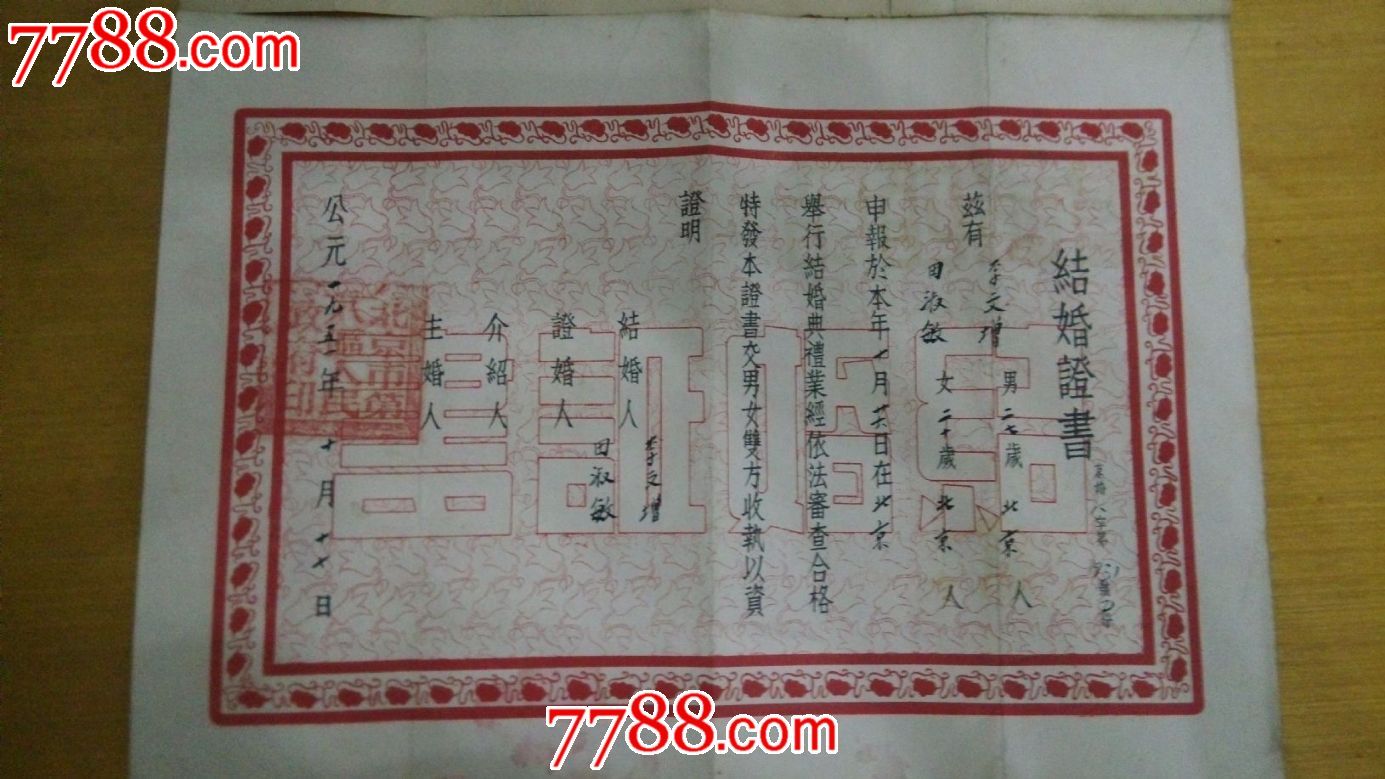 7788.com
結婚證書
茲有
李文增 男 二七歲 北京 人
田淑敏 女 二十歲 北京 人
申報於本年十月 日在北京
舉行結婚典禮業經依法審查合格
特發本證書交男女雙方收執以資
證明
結婚人 李文增
田淑敏
證婚人
介紹人
主婚人
公元一九五一年十月十七日
7788.com